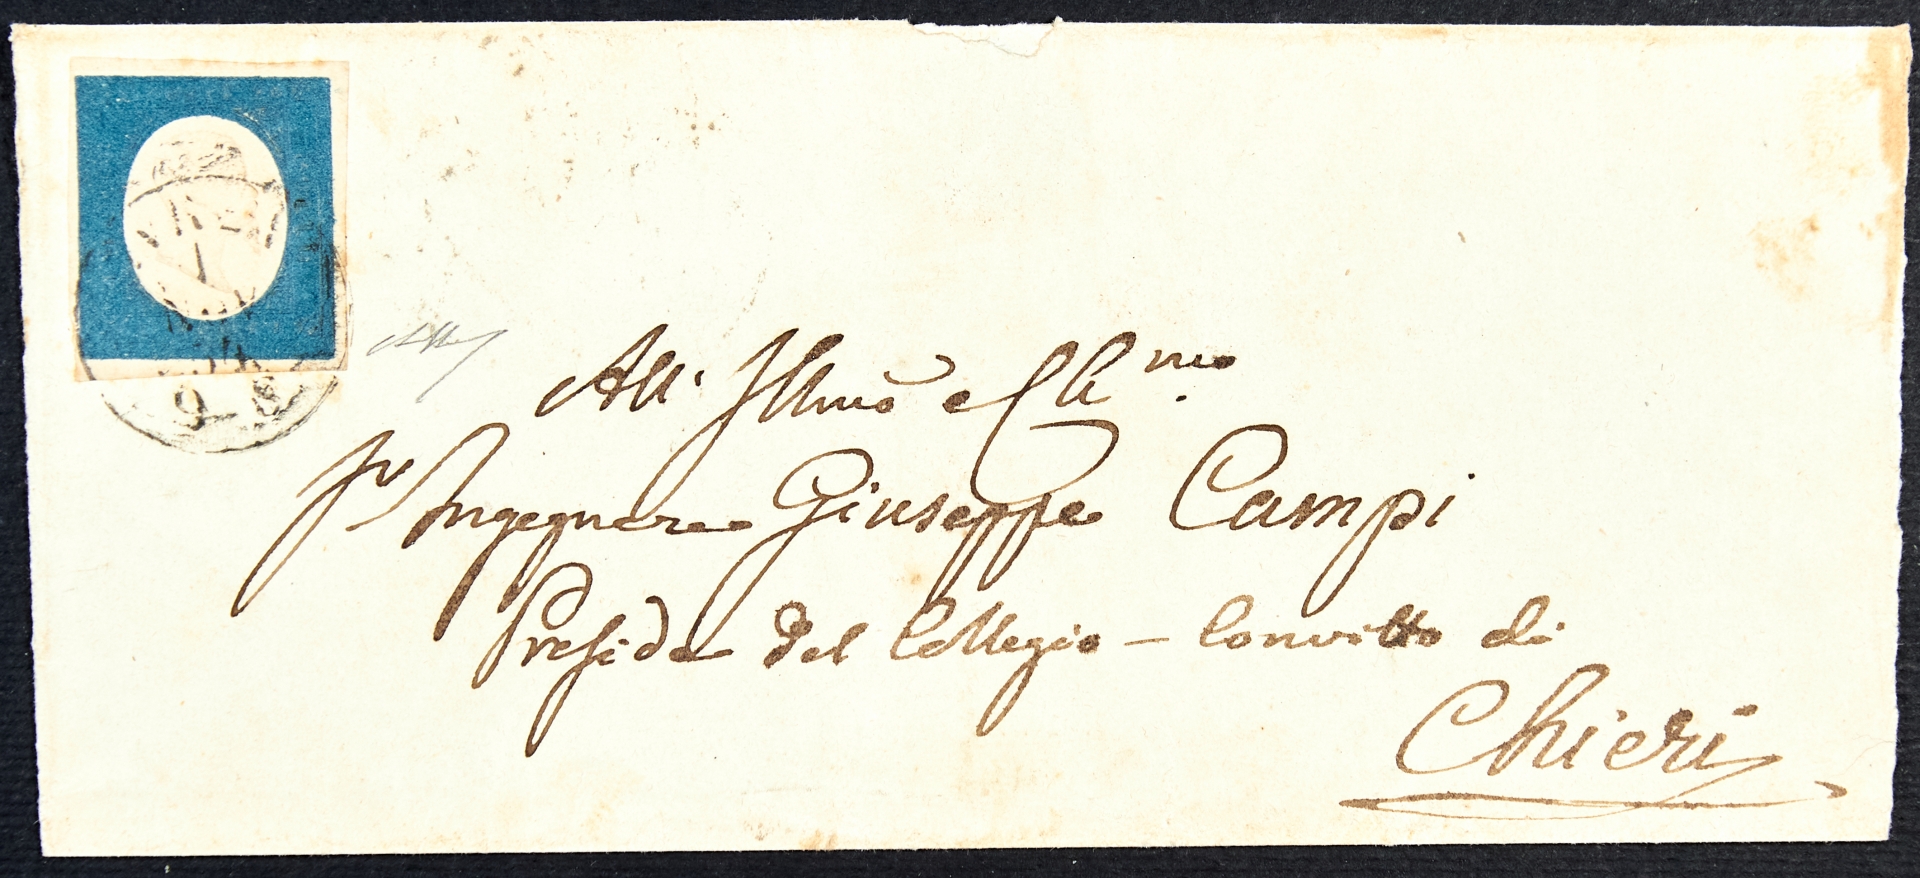 All' Illmo e Ch.mo
Sr Ingegnere Giuseppe Campi
Preside del Collegio - Convitto di
Chieri
1
9 S